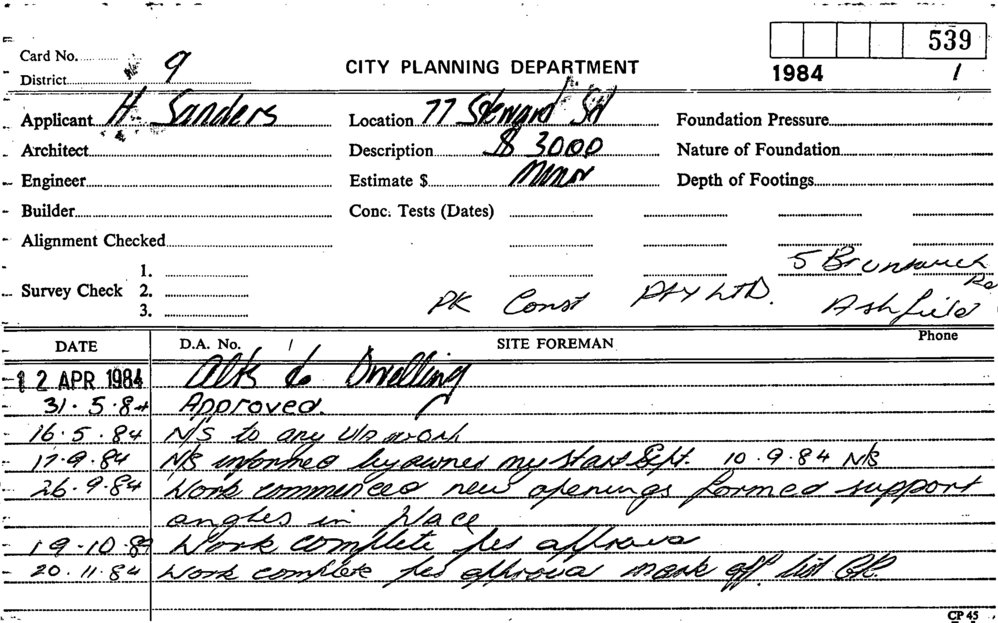 539
Card No. 9
CITY PLANNING DEPARTMENT
1984 1
District
Applicant H. Sanders Location 77 Steward Str Foundation Pressure
Architect Description $ 3000 Nature of Foundation
Engineer Estimate $ Minor Depth of Footings
Builder Conc. Tests (Dates)
Alignment Checked
1. 5 Brunswick
Survey Check 2. PK Const Pty LTD. Ashfield
3.
DATE D.A. No. / SITE FOREMAN Phone
12 APR 1984 Alts to Dwelling
31.5.84 Approved.
16.5.84 N/S to any work
17.9.84 N/S informed by owner may start Sept. 10.9.84 N/S
26.9.84 Work commenced new openings formed support
angles in place
19.10.84 Work complete
20.11.84 Work complete mark off list
CP 45